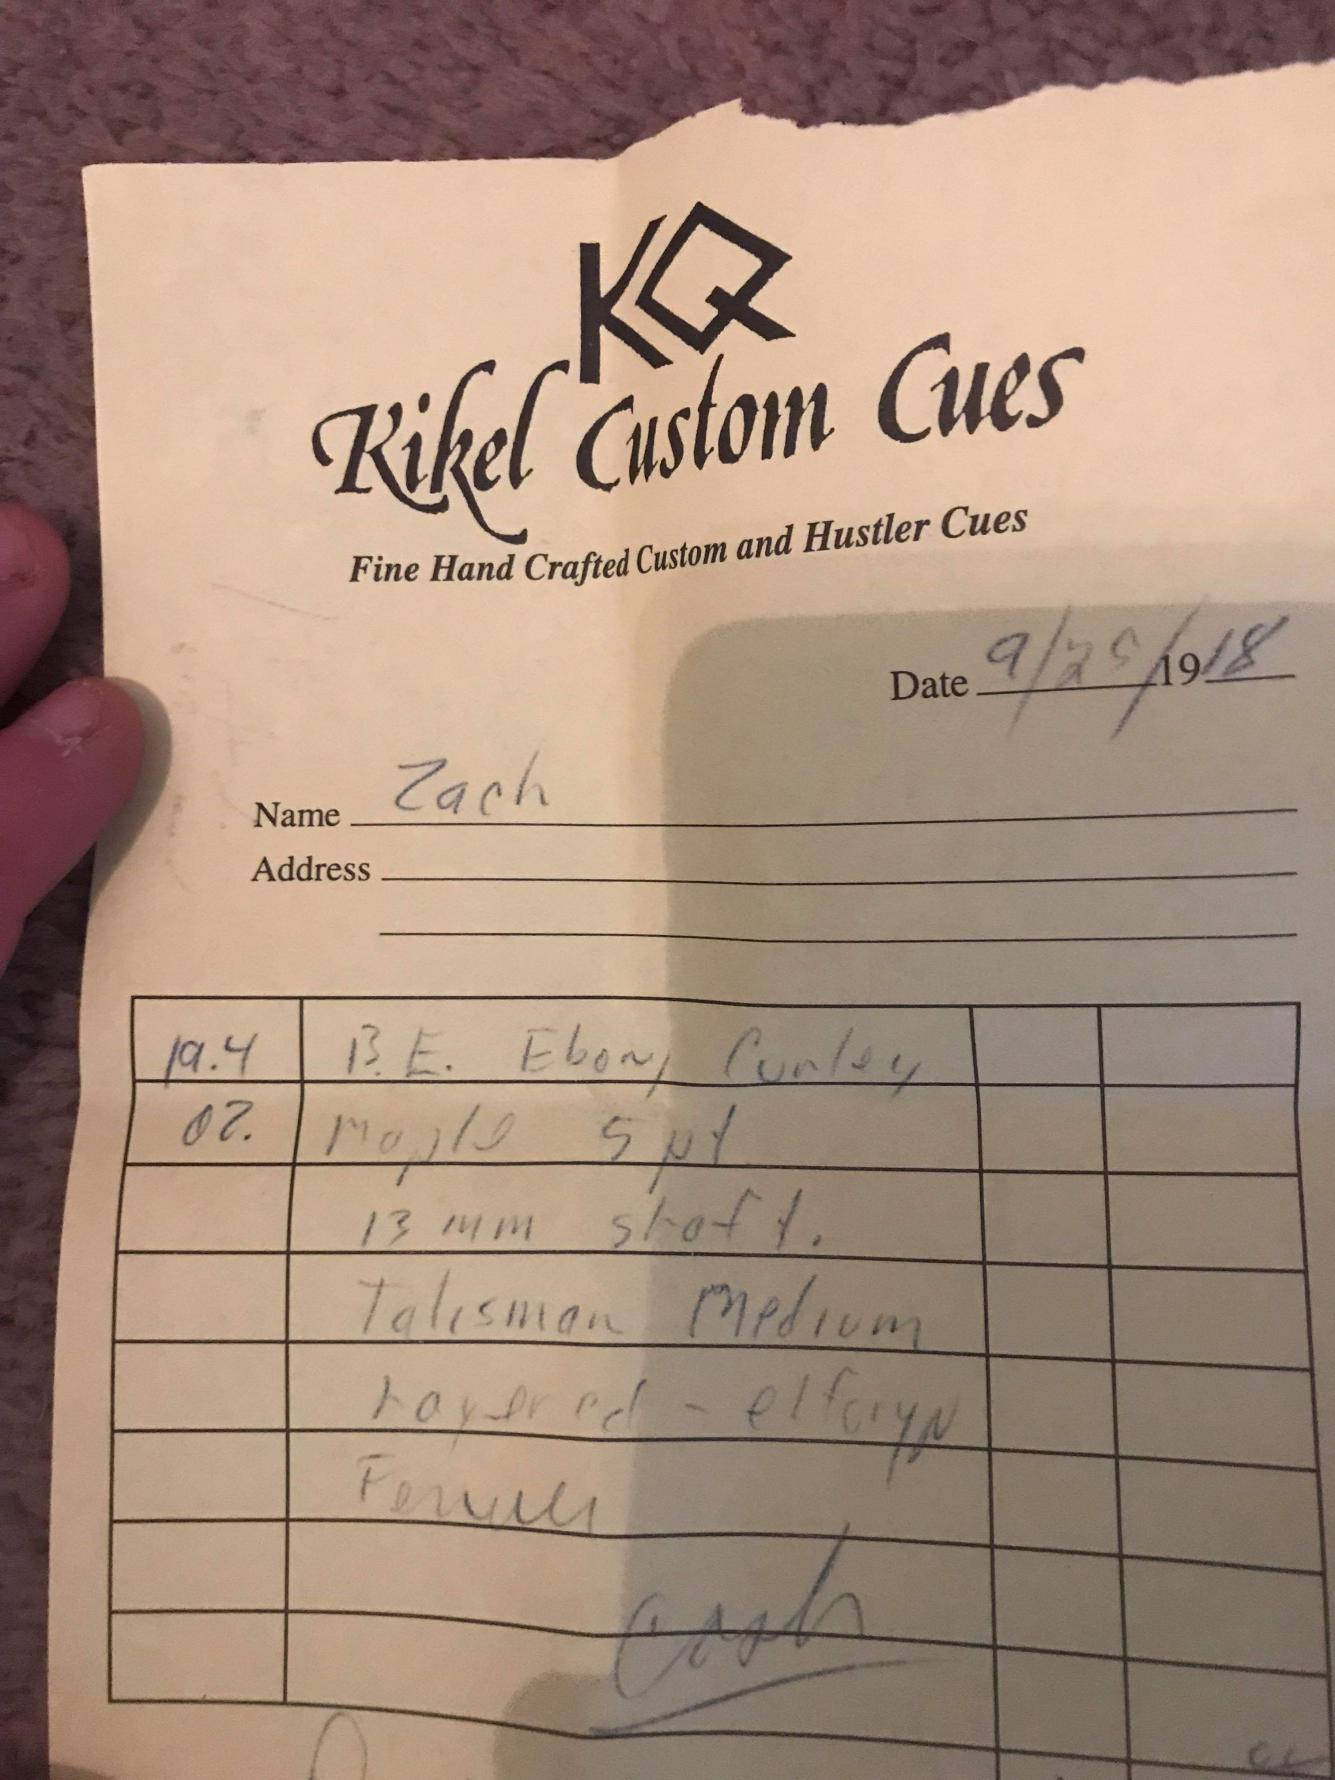 KQ
Kikel Custom Cues
Fine Hand Crafted Custom and Hustler Cues
Date 9/25/1918
Name Zach
Address
19.4 B.E. Ebony Curley
oz. Maple 5 pt
13 mm shaft.
Talisman Medium
Layered - elforyn
Ferrule
Cash